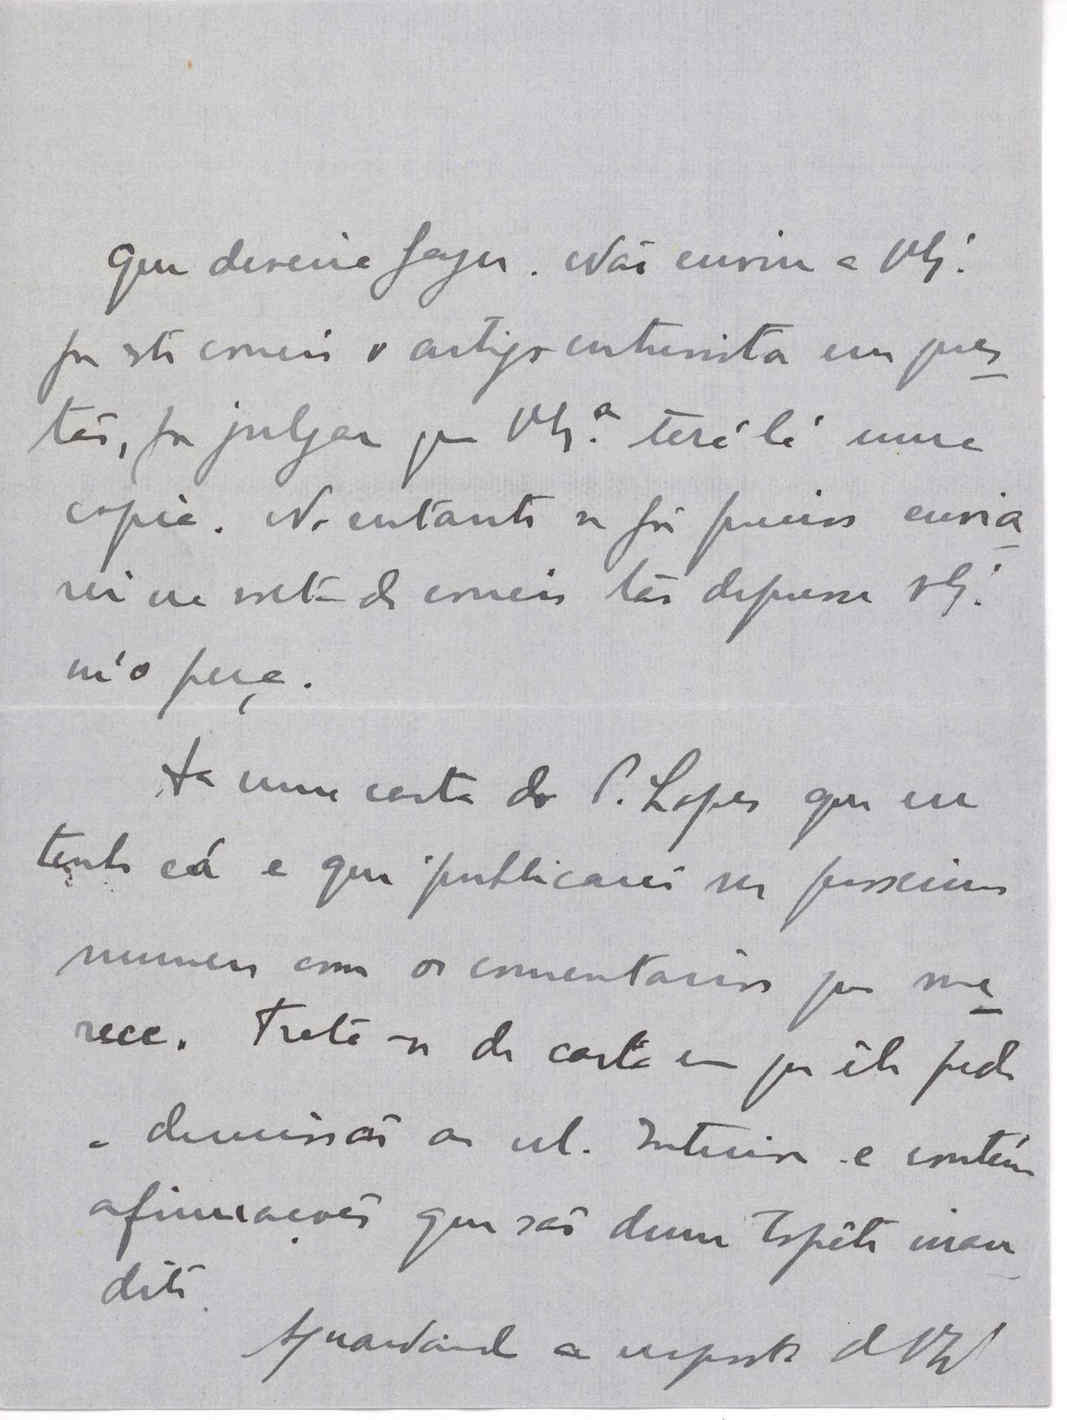 que deveria fazer. Não enviei a V. Ex.ª
por este correio o artigo entrevista em ques_
tão, por julgar que V. Ex.ª terá lá uma
copia. No entanto se fôr preciso envia_
rei na volta do correio tão depressa V. Ex.ª
m'o peça.
Ha uma carta do P. Lopes que eu
tenho cá e que publicarei no proximo
numero com os comentarios que me_
rece. Trata-se da carta em que êle pede
a demissão ao ul. Interior e contém
afirmações que são dum topête inau_
dito.
Aguardando a resposta de V. Ex.ª